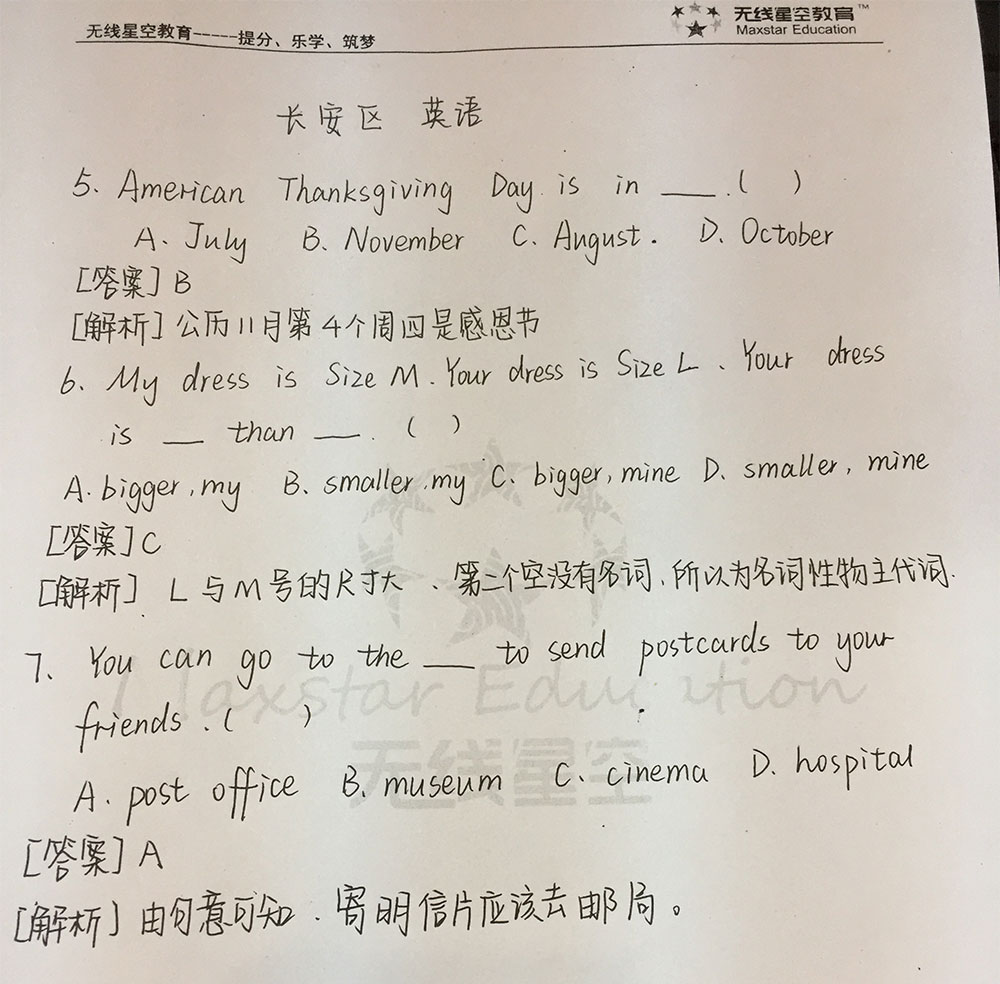 无线星空教育-----提分、乐学、筑梦
无线星空教育™
Maxstar Education
长安区 英语
5. American Thanksgiving Day is in ___.( )
A. July B. November C. August. D. October
[答案] B
[解析] 公历11月第4个周四是感恩节
6. My dress is Size M. Your dress is Size L. Your dress
is ___ than ___. ( )
A. bigger, my B. smaller, my C. bigger, mine D. smaller, mine
[答案] C
[解析] L与M号的尺寸大、第二个空没有名词,所以为名词性物主代词.
7. You can go to the ___ to send postcards to your
friends.( )
Maxstar Education
无线星空
A. post office B. museum C. cinema D. hospital
[答案] A
[解析] 由句意可知.寄明信片应该去邮局。